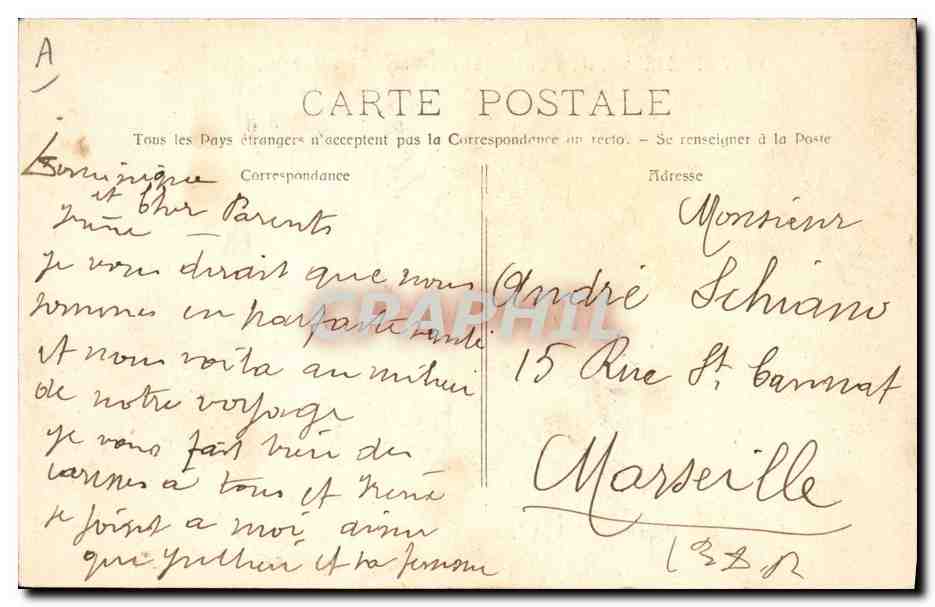 A
CARTE POSTALE
Tous les Pays étrangers n'acceptent pas la Correspondance au recto. - Se renseigner à la Poste
Correspondance
Dominique
et Cher Parents
Je vous dirait que nous
sommes en parfaite santé
et nous voila au milieu
de notre voyage
Je vous fait bien des
caresses a tous et Irène
se joint a moi ainsi
que et sa femme
Adresse
Monsieur
André Schiano
15 Rue St. Cannat
Marseille
B.D.R
CPAPHIL